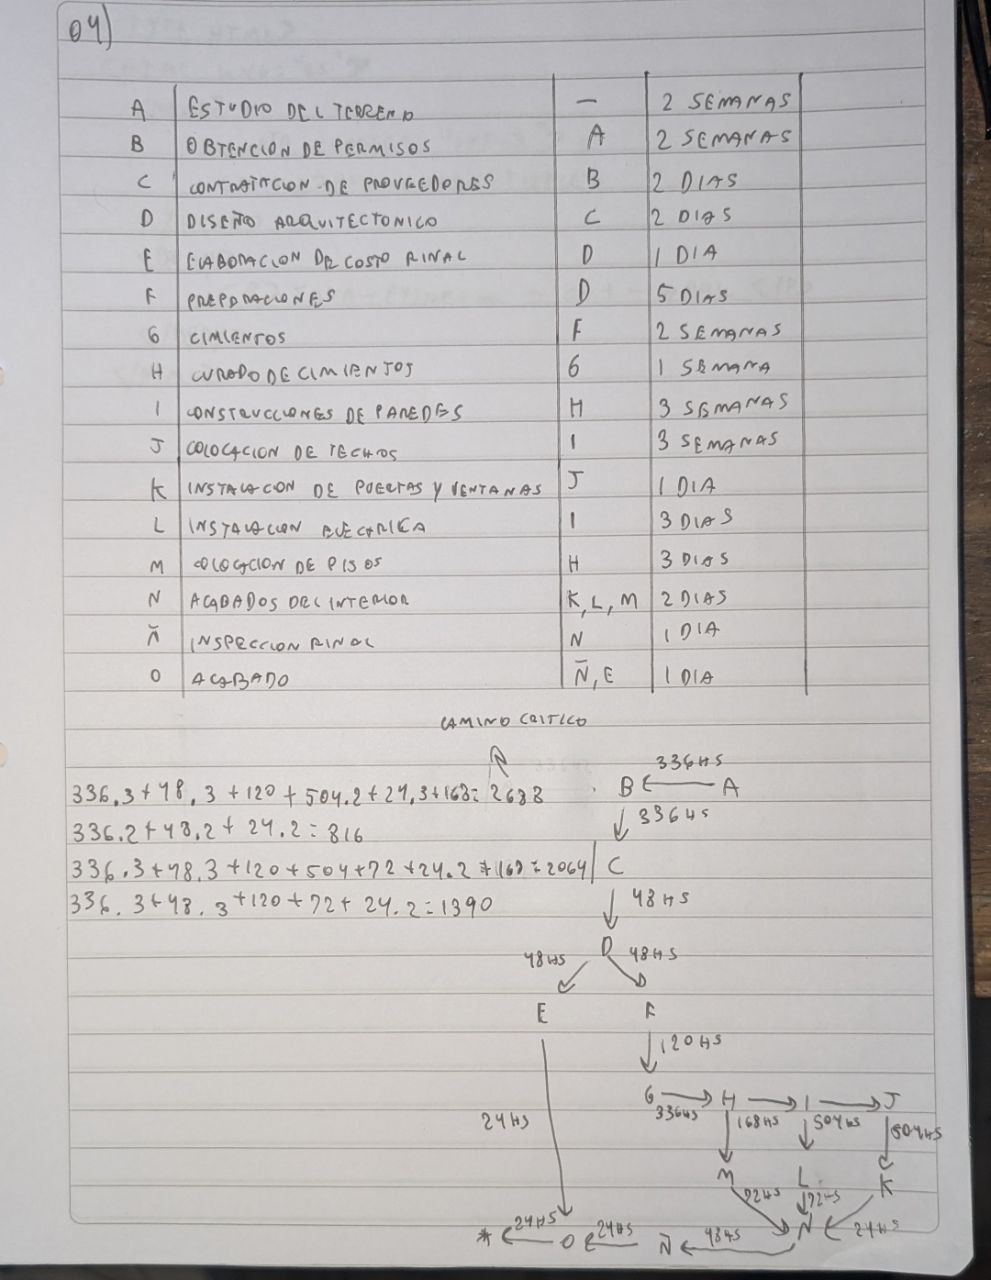 04)
A ESTUDIO DEL TERRENO — 2 SEMANAS
B OBTENCION DE PERMISOS A 2 SEMANAS
C CONTRATACION DE PROVEEDORES B 2 DIAS
D DISEÑO ARQUITECTONICO C 2 DIAS
E ELABORACION DE COSTO FINAL D 1 DIA
F PREPARACIONES D 5 DIAS
G CIMIENTOS F 2 SEMANAS
H CURADO DE CIMIENTOS G 1 SEMANA
I CONSTRUCCIONES DE PAREDES H 3 SEMANAS
J COLOCACION DE TECHOS I 3 SEMANAS
K INSTALACION DE PUERTAS Y VENTANAS J 1 DIA
L INSTALACION ELECTRICA I 3 DIAS
M COLOCACION DE PISOS H 3 DIAS
N ACABADOS DEL INTERIOR K, L, M 2 DIAS
Ñ INSPECCION FINAL N 1 DIA
O ACABADO Ñ, E 1 DIA
CAMINO CRITICO
336.3+48.3+120+504.2+24.3+168=2688
336.2+48.2+24.2=816
336.3+48.3+120+504+72+24.2+168=2064
336.3+48.3+120+72+24.2=1390
336HS
B A
336HS
C
48HS
D
48HS 48HS
E F
120HS
G H I J
336HS 168HS 504HS 504HS
24HS
M L K
72HS 72HS 24HS
* 24HS O 24HS Ñ 48HS N